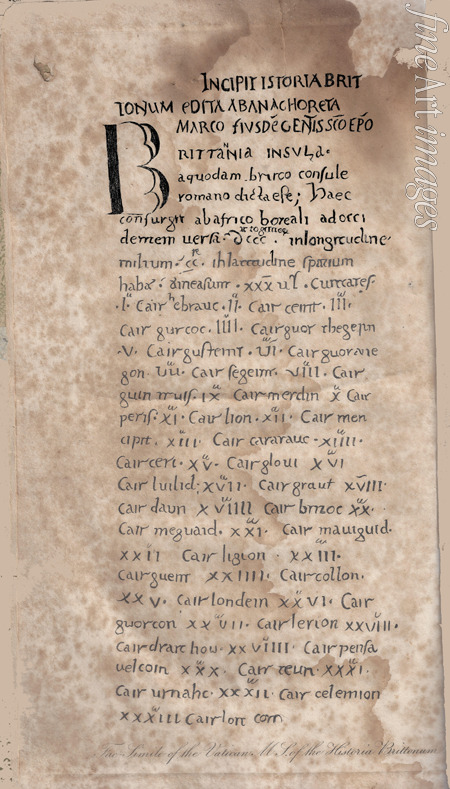 INCIPIT ISTORIA BRIT
TONUM EDITA AB ANACHORETA
MARCO EIUSDĒ GENTIS SC̄O EPŌ
BRITTANIA INSULA
a quodam brirco consule
romano dicta est; haec
consurgit ab africo boreali ad occi
dentem versa . dccc . in longitudine
milium . cc . in latitudine spatium
habẽ
.I. Cair ebrauc . II . Cair ceint . III .
Cair gurcoc . IIII . Cair guorthegern
. V . Cair gusteint . VI . Cair guoranie
gon . VII . Cair segeint . VIII . Cair
guin truis . IX Cair merdin X Cair
peris . XI . Cair lion . XII . Cair men
cipit . XIII . Cair caratauc . XIIII .
Cair ceri . XV . Cair gloui XVI
Cair luilid ; XVII . Cair graut XVIII .
Cair daun XVIIII Cair britoc XX .
Cair meguaid . XXI . Cair mauiguid .
XXII Cair ligion . XXIII .
Cair guent XXIIII . Cair collon .
XXV . Cair londein XXVI . Cair
guorcon XXVII . Cair lerion XXVIII .
Cair draithou . XXVIIII . Cair pensa
uelcoin XXX . Cair teun . XXXI .
Cair urnahc . XXXII . Cair celemion
XXXIII Cair loit coit
Fac Simile of the Vatican M S. of the Historia Brittonum
fine Art images